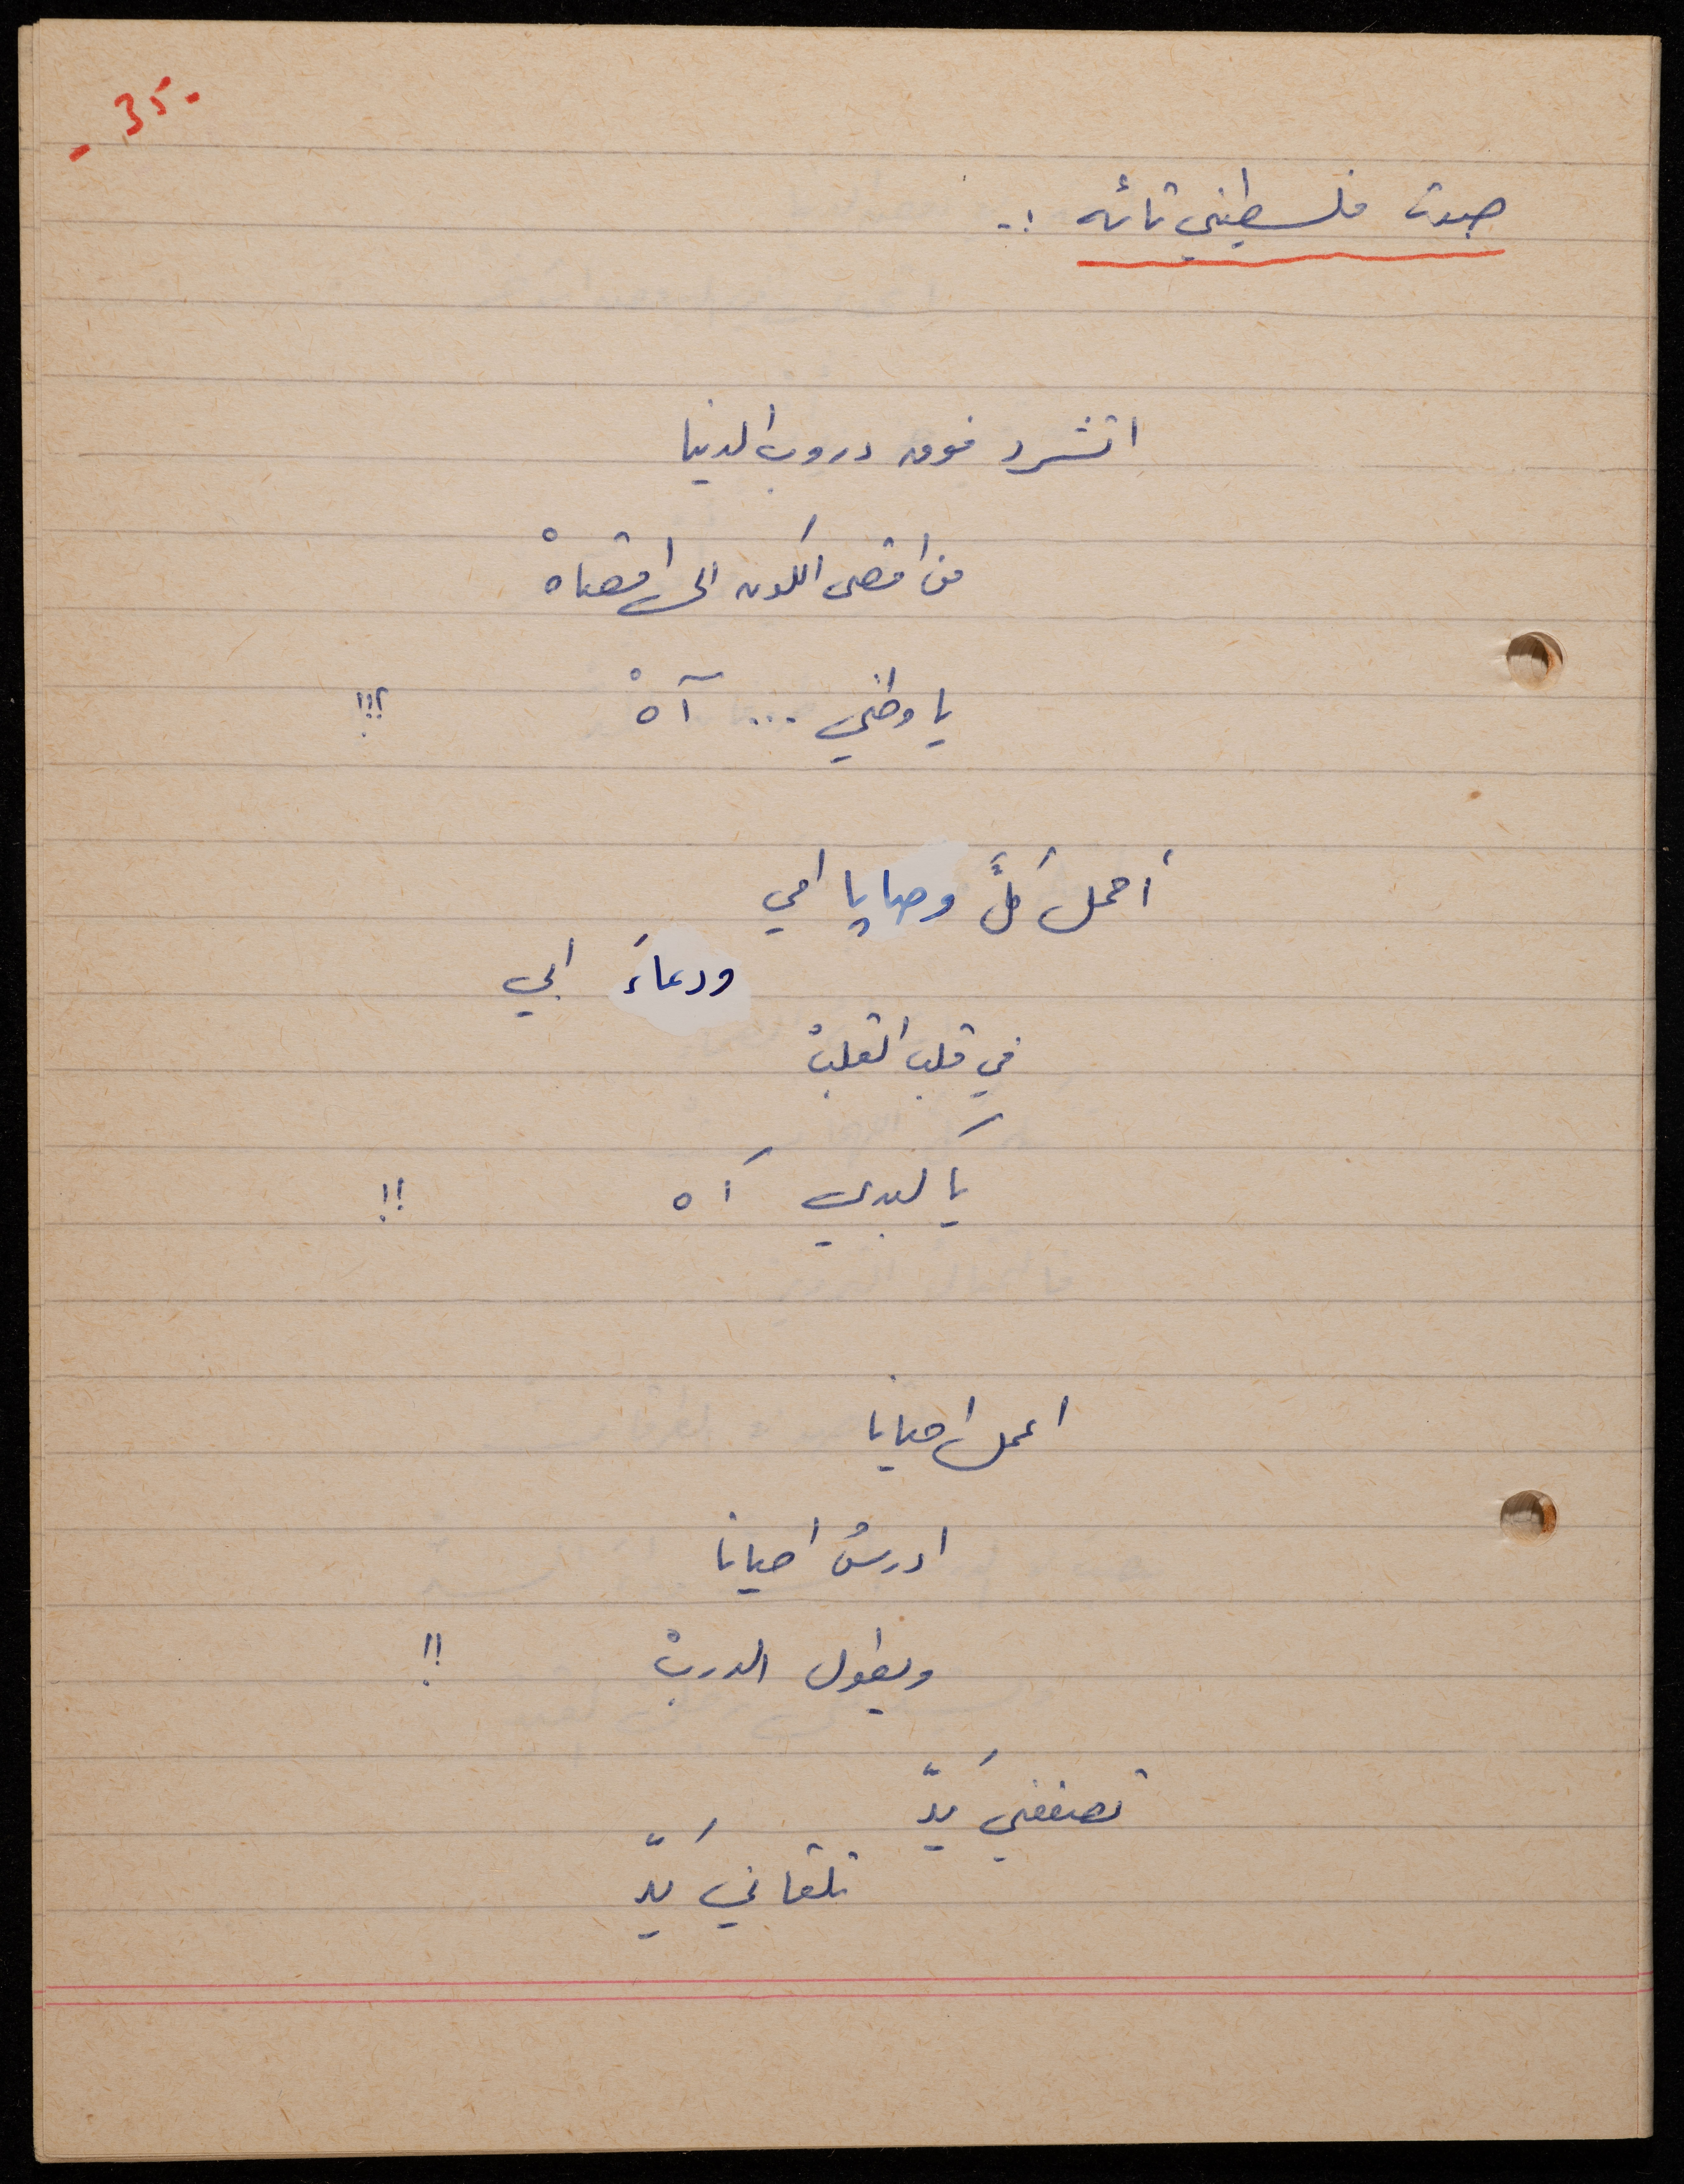 - 35 -
صوت فلسطيني تائه :-
اتشرد فوق دروب الدنيا
من اقصى الكون الى اقصاهْ
يا وطني ... آهْ !!!
أحمل كلَّ وصايا امي
ودعاءَ ابي
في قلب القلبْ
يا كبدي آه !!
اعمل احيانا
ادرسُ احيانا
ويطول الدربْ !!
تصفعني يدّ
تلقاني يدّ